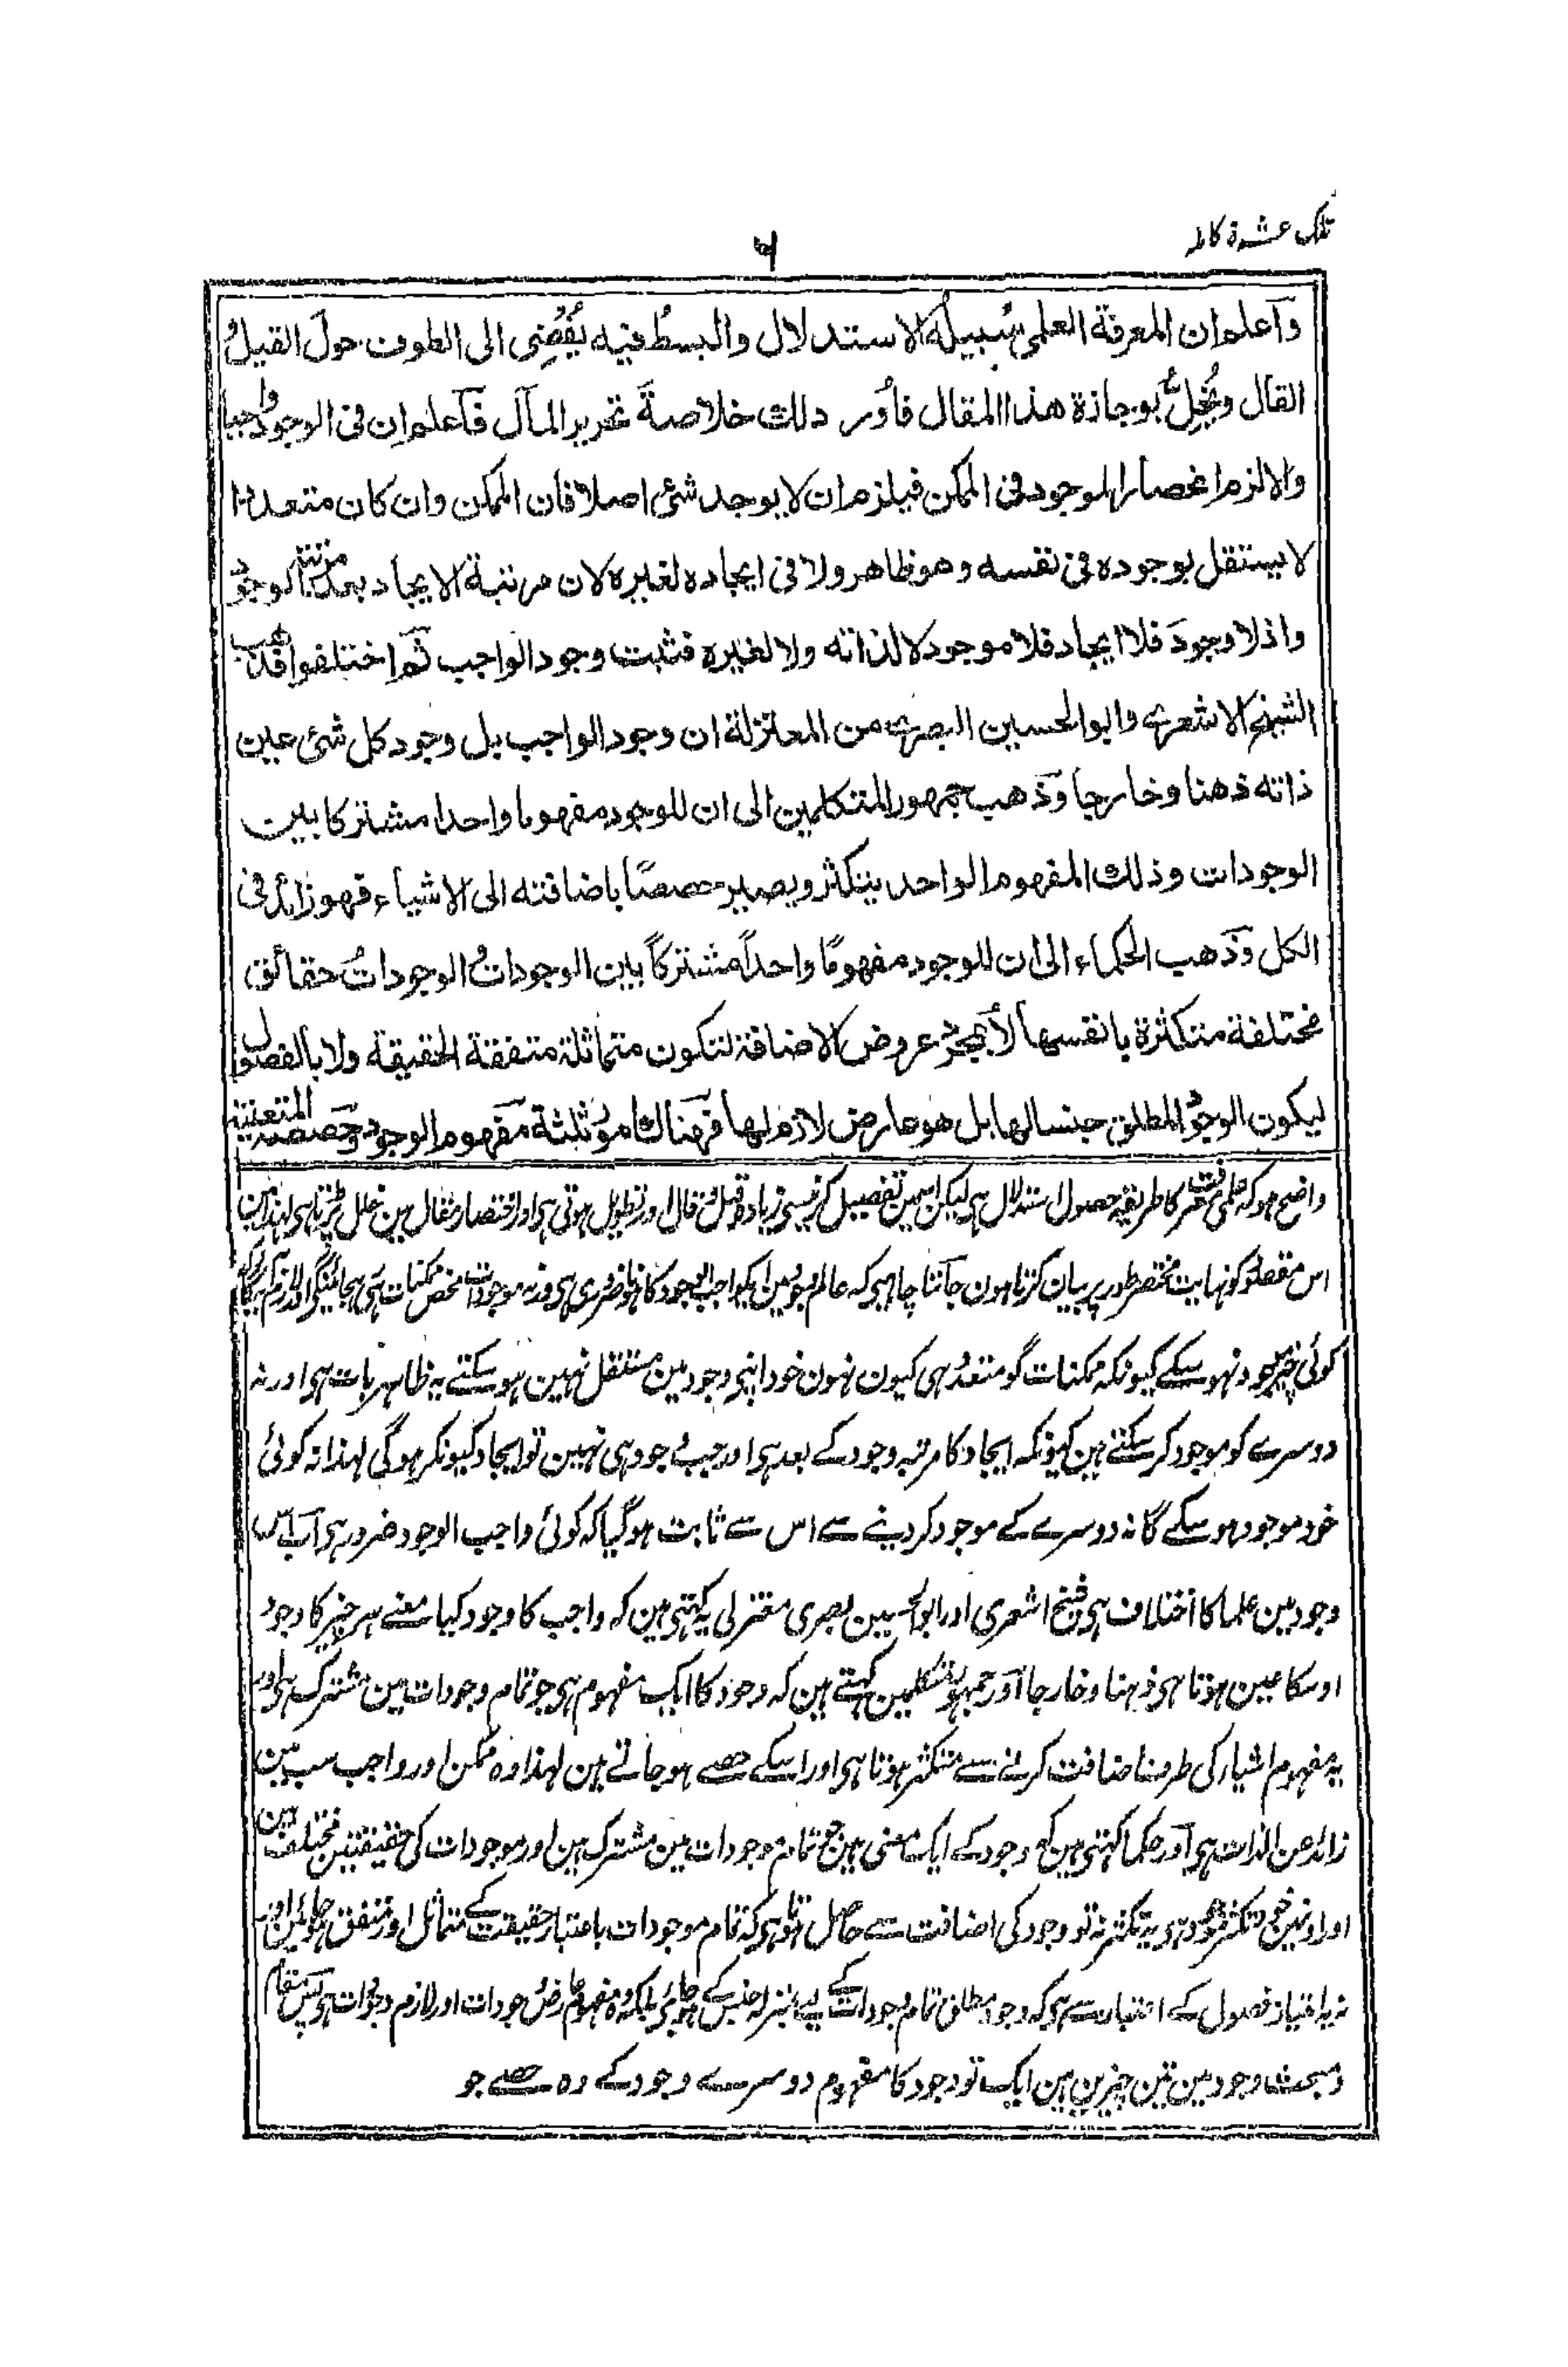 تلک عشرة كامله
٦
وَآعلم ان المعرفة العلمي سُبيله الاستدلال والبسطُ فيه يُفُضِى الى الطوف حولَ القيلُ
القال ويُخِلُّ بوجازة هذا المقال فأورد لك خلاصةَ تحرير المآل فَآعلم ان فى الوجود واجبا
والا لزم انحصار الموجود فى الممكن فيلزم ان لا يوجد شئ اصلا فان الممكن وان كان متعددا
لا يستقل بوجوده فى نفسه وهو ظاهر ولا فى ايجاده لغيره لان مرتبة الايجاد بعد مرتبة الوجود
واذ لا وجودَ فلا ايجاد فلا موجود لا لذاته ولا لغيره فثبت وجود الواجب ثم اختلفوا فذهب
الشيخ الاشعرى وابوالحسين البصرى من المعتزلة ان وجود الواجب بل وجود كل شئ عين
ذاته ذهنا وخارجا وَذهب جمهور المتكلمين الى ان للوجود مفهوما واحدا مشتركا بين
الوجودات وذلك المفهوم الواحد يتكثر ويصير حصصًا باضافته الى الاشياء فهو زائد فى
الكل وَذهب الحكماء الى ان للوجود مفهومًا واحداً مشتركاً بين الوجودات والوجوداتُ حقائق
مختلفة متكثرة بانفسها لا بمجرد عروض الاضافة لتكون متماثلة متفقة الحقيقة ولا بالفصول
ليكون الوجود المطلق جنسا لها بل هو عارض لازم لها فهناك امور ثلثة مفهوم الوجود وحصصه المتعينة
واضح ہو کہ علمی معرفت کا طریقہ حصول استدلال ہی لیکن اسمین تفصیل کرنیسی زیادہ قیل و قال اور تطویل ہوتی ہی اور اختصار مقال مین خلل پڑتا ہی لہذا مین
اس مقصد کو نہایت مختصر طور پر بیان کرتا ہون جآننا چاہیی کہ عالم وجود مین ایک واجب الوجود کا ہونا ضروری ہی ورنہ موجودات محض ممکنات ہی رہجائینگی اور لازم آئیگا کہ
کوئی چیز موجود نہوسکے کیونکہ ممکنات گو متعدد ہی کیون نہون خود اپنی وجود مین مستقل نہین ہو سکتے یہ ظاہر بات ہی اور نہ
دوسرے کو موجود کر سکتے ہین کیونکہ ایجاد کا مرتبہ وجود کے بعد ہی اور جب وجود ہی نہین تو ایجاد کیونکر ہوگی لہذا نہ کوئی
خود موجود ہو سکے گا نہ دوسرے کے موجود کر دینے سے اس سے ثابت ہو گیا کہ کوئی واجب الوجود ضرور ہی آب اس
وجود مین علما کا اختلاف ہی شیخ اشعری اور ابوالحسین بصری معتزلی یہ کہتی ہین کہ واجب کا وجود کیا معنے ہر چیز کا وجود
اوسکا عین ہوتا ہی ذہنا وخارجا آور جمہور متکلمین کہتے ہین کہ وجود کا ایک مفہوم ہی جو تمام وجودات مین مشترک ہی اور
یہ مفہوم اشیار کی طرف اضافت کرنے سے متکثر ہوتا ہی اور اسکے حصے ہو جاتے ہین لہذا وہ ممکن اور واجب سب مین
زائد عن الذات ہی آور حکما کہتی ہین کہ وجود کے ایک معنی ہین جو تمام موجودات مین مشترک ہین اور موجودات کی حقیقتین مختلف ہین
اور اونہین خود تکثر موجود ہی یہ تکثر نہ تو وجود کی اضافت سے حاصل ہوتا ہی کہ تمام موجودات باعتبار حقیقت کے متماثل اور متفق ہو جائین اور
نہ یہ امتیاز فصول کے اعتبار سے ہی کہ وجود مطلق تمام وجودات کے لیے بمنزلہ جنس کے ہو جائے بلکہ وہ مفہوم عارض وجودات اور لازم وجودات ہی پس مقام
مبحث وجود مین تین چیزین ہین ایک تو وجود کا مفہوم دوسرے وجود کے وہ حصے جو